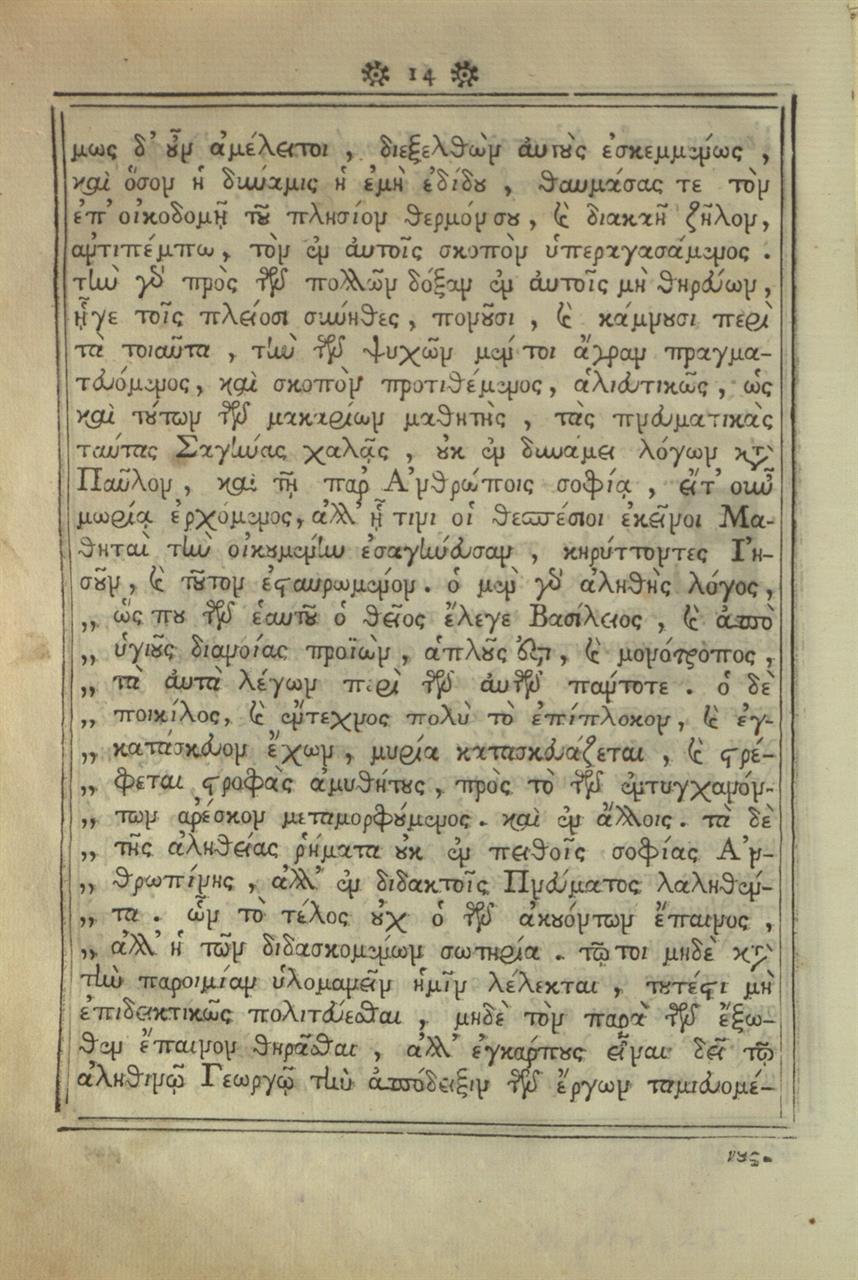 14
μως δ' οὖν ἀμέλειτοι, διεξελθὼν αὐτοὺς ἐσκεμμένως,
καὶ ὅσον ἡ δύναμις ἡ ἐμὴ ἐδίδου, θαυμάσας τε τὸν
ἐπ' οἰκοδομῇ τοῦ πλησίον θερμόν σου, καὶ διακαῆ ζῆλον,
ἀντιπέμπω, τὸν ἐν αὐτοῖς σκοπὸν ὑπεραγασάμενος.
τὴν γὰρ πρὸς τῶν πολλῶν δόξαν ἐν αὐτοῖς μὴ θηρεύων,
ᾗγε τοῖς πλείοσι σύνηθες, πονοῦσι, καὶ κάμνουσι περὶ
τὰ τοιαῦτα, τὴν τῶν ψυχῶν μέν τοι ἄγραν πραγμα-
τευόμενος, καὶ σκοπὸν προτιθέμενος, ἁλιευτικῶς, ὡς
καὶ τούτων τῶν μακαρίων μαθητης, τὰς πνευματικὰς
ταύτας Σαγήνας χαλᾷς, οὐκ ἐν δυνάμει λόγων κατὰ
Παῦλον, καὶ τῇ παρ Ἀνθρώποις σοφίᾳ, εἴτ' οὖν
μωρίᾳ ἐρχόμενος, ἀλλ' ᾗ τινι οἱ θεσπέσιοι ἐκεῖνοι Μα-
θηταὶ τὴν οἰκουμένην ἐσαγήνευσαν, κηρύττοντες Ἰη-
σοῦν, καὶ τοῦτον ἐσταυρωμένον. ὁ μὲν γὰρ ἀληθὴς λόγος,
,, ὥς που τῶν ἑαυτοῦ ὁ θεῖος ἔλεγε Βασίλειος, καὶ ἀπὸ
,, ὑγιοῦς διανοίας προϊὼν, ἁπλοῦς ἐστι, καὶ μονότροπος,
,, τὰ αὐτὰ λέγων περὶ τῶν αὐτῶν πάντοτε. ὁ δὲ
,, ποικίλος, καὶ ἔντεχνος πολὺ τὸ ἐπίπλοκον, καὶ ἐγ-
,, κατάσκευον ἔχων, μυρία κατασκευάζεται, καὶ στρέ-
,, φεται στροφὰς ἀμυθήτους, πρὸς τὸ τῶν ἐντυγχανόν-
,, των αρέσκον μεταμορφούμενος. καὶ ἐν ἄλλοις. τὰ δὲ
,, τῆς ἀληθείας ῥήματα οὐκ ἐν πειθοῖς σοφίας Ἀν-
,, θρωπίνης, ἀλλ' ἐν διδακτοῖς Πνεύματος λαληθέν-
,, τα. ὧν τὸ τέλος οὐχ ὁ τῶν ἀκουόντων ἔπαινος,
,, ἀλλ' ἡ τῶν διδασκομένων σωτηρία. τῷ τοι μηδὲ κατὰ
τὴν παροιμίαν ὑλομανεῖν ἡμῖν λέλεκται, τουτέστι μὴ
ἐπιδεικτικῶς πολιτεύεσθαι, μηδὲ τὸν παρὰ τῶν ἔξω-
θεν ἔπαινον θηρᾶσθαι, ἀλλ' ἐγκάρπους εἶναι δεῖ τῷ
ἀληθινῷ Γεωργῷ τὴν ἀπόδειξιν τῶν ἔργων ταμιευομέ-
νους.